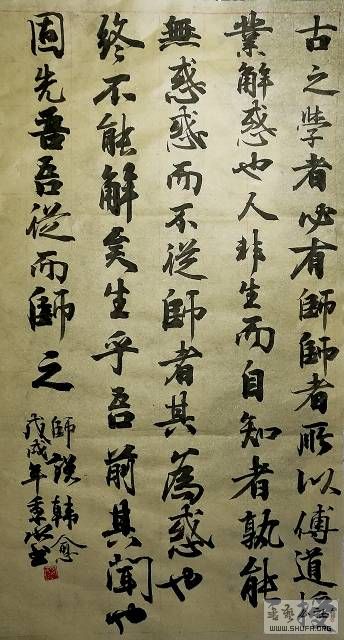 古之學者必有師師者所以傳道授
業解惑也人非生而自知者孰能
無惑惑而不從師者其為惑也
終不能解矣生乎吾前其聞也
固先吾吾從而師之
師说韩愈
戊戌年
WWW.SHUFA.ORG